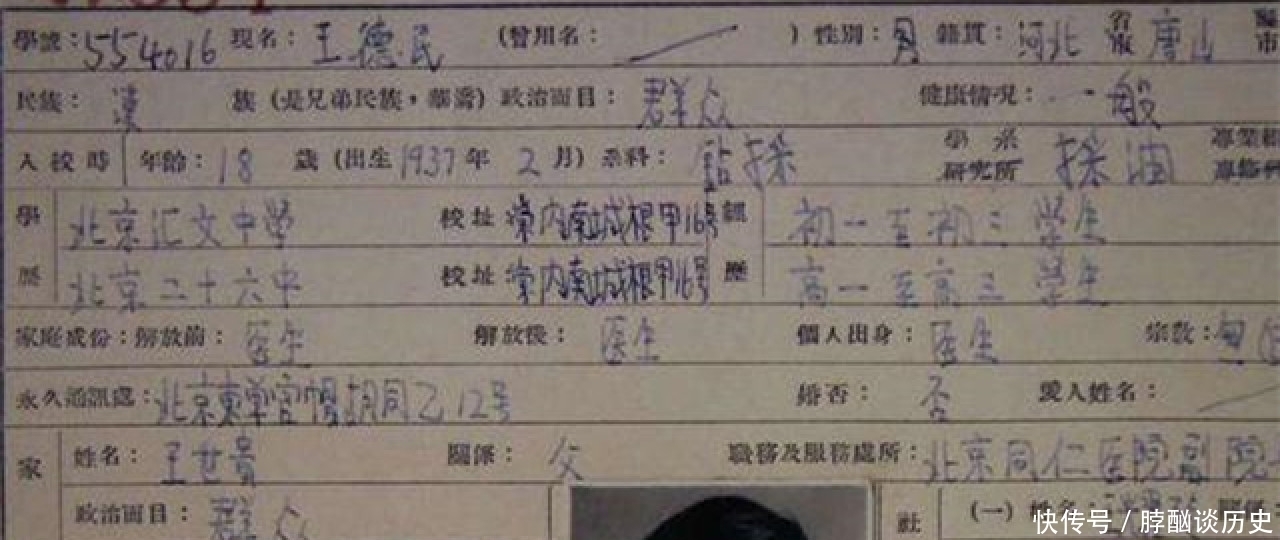 學號：554016 現名：王德民 （曾用名： ） 性別：男 籍貫：河北 省市 唐山 縣市
民族：漢 族（是兄弟民族，華僑）政治面目：群众 健康情況：一般
入校時 年齡：18 歲（出生1937年 2月）系科：鈷採 學系 研究所 採油 專業
學 北京汇文中学 校址 崇内南城根甲16号 經 初一至初三学生
歷 北京二十六中 校址 崇内南城根甲16号 歷 高一至高三学生
家庭成份：解放前：医生 解放後：医生 個人出身：医生 宗教：
永久通訊處：北京東单官帽胡同乙12号 婚否：否 愛人姓名：
家 姓名：王世貴 關係：父 職務及服務處所：北京同仁医院副院
政治面目：群众 社 （一）姓名： 關係：
快传号／脖酗谈历史